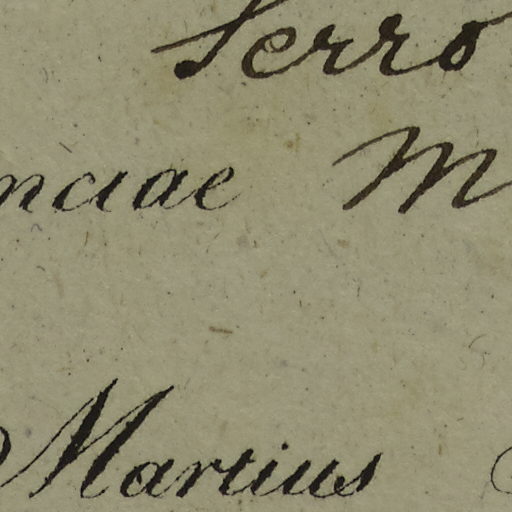 Serro
nciae M
Martius